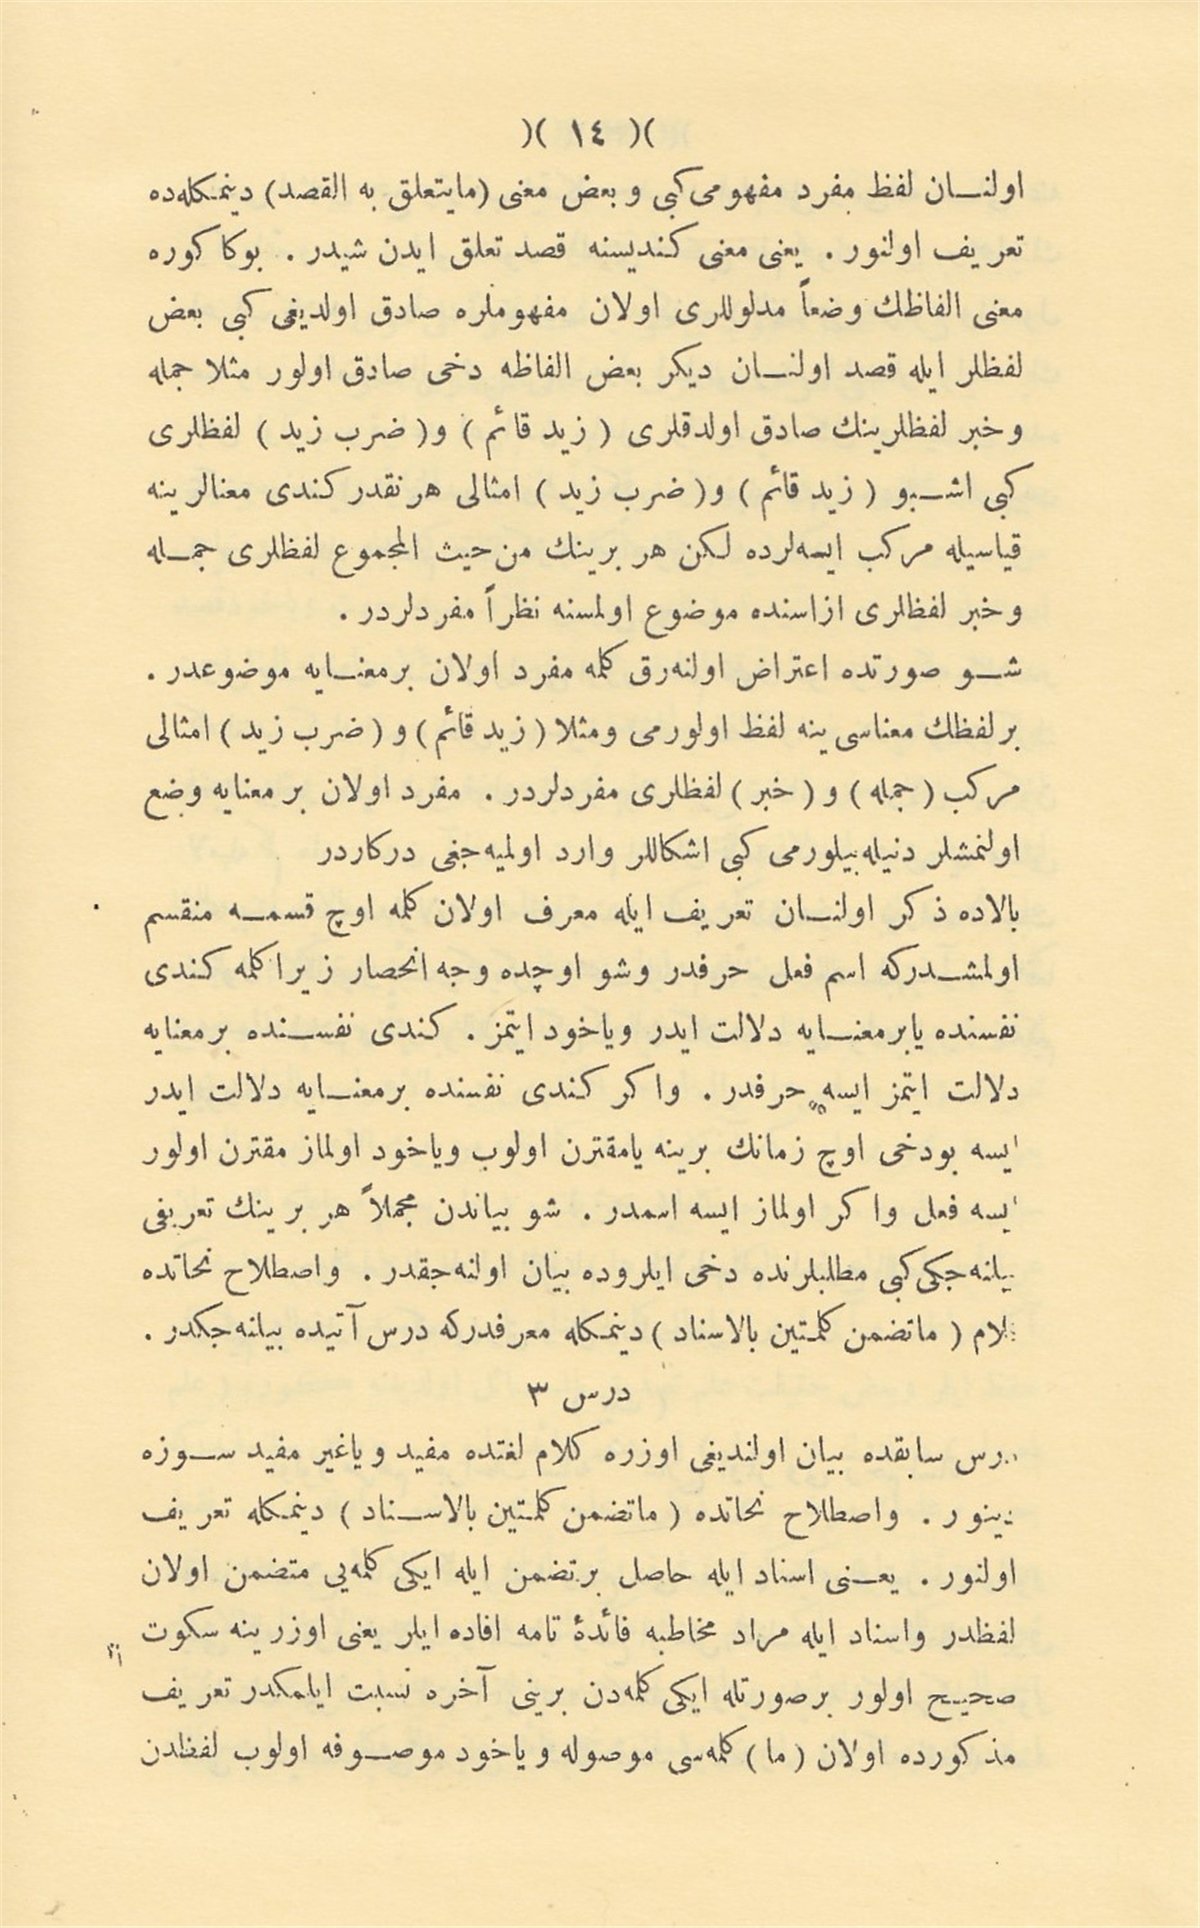 )( ١٤ )(
اولنان لفظ مفرد مفهومی کبی و بعض معنی (مایتعلق به القصد) دینمکله‌ده
تعریف اولنور . یعنی معنی کندیسنه قصد تعلق ایدن شیدر . بوکا کوره
معنی الفاظك وضعاً مدلوللری اولان مفهوملره صادق اولدیغی کبی بعض
لفظلر ایله قصد اولنان دیکر بعض الفاظه دخی صادق اولور مثلا جمله
و خبر لفظلرینك صادق اولدقلری ( زید قائم ) و( ضرب زید ) لفظلری
کبی اشبو ( زید قائم ) و( ضرب زید ) امثالی هر نقدر کندی معنالرینه
قیاسیله مرکب ایسه‌لرده لکن هر برینك من حیث المجموع لفظلری جمله
و خبر لفظلری ازاسنده موضوع اولمسنه نظراً مفرد‌لردر .
شو صورتده اعتراض اولنه‌رق کلمه مفرد اولان بر معنایه موضوعدر .
بر لفظك معناسی ینه لفظ اولورمی ومثلا ( زید قائم ) و ( ضرب زید ) امثالی
مرکب ( جمله ) و ( خبر ) لفظلری مفردلردر . مفرد اولان بر معنایه وضع
اولنمشلر دنیله بیلورمی کبی اشکاللر وارد اولمیه‌جغی درکاردر
بالاده ذکر اولنان تعریف ایله معرف اولان کلمه اوچ قسمه منقسم
اولمشدرکه اسم فعل حرفدر وشو اوچده وجه انحصار زیرا کلمه کندی
نفسنده یا بر معنایه دلالت ایدر ویاخود ایتمز . کندی نفسنده بر معنایه
دلالت ایتمز ایسه حرفدر . واکر کندی نفسنده بر معنایه دلالت ایدر
ایسه بودخی اوچ زمانك برینه یا مقترن اولوب ویاخود اولماز مقترن اولور
ایسه فعل واکر اولماز ایسه اسمدر . شو بیاندن مجملاً هر برینك تعریفی
بیلنه‌جکی کبی مطلبلرنده دخی ایلروده بیان اولنه‌جقدر . واصطلاح نحاتده
کلام ( ماتضمن کلمتین بالاسناد ) دینمکله معرفدرکه درس آتیده بیلنه‌جکدر .
درس ٣
درس سابقده بیان اولندیغی اوزره کلام لغتده مفید ویا غیر مفید سوزه
دینور . واصطلاح نحاتده ( ماتضمن کلمتین بالاسناد ) دینمکله تعریف
اولنور . یعنی اسناد ایله حاصل بر تضمن ایله ایکی کلمه‌یی متضمن اولان
لفظدر واسناد ایله مراد مخاطبه فائدۀ تامه افاده ایلر یعنی اوزرینه سکوت
صحیح اولور بر صورتله ایکی کلمه‌دن برینی آخره نسبت ایلمکدر تعریف
مذکورده اولان ( ما ) کلمه‌سی موصوله ویاخود موصوفه اولوب لفظدن